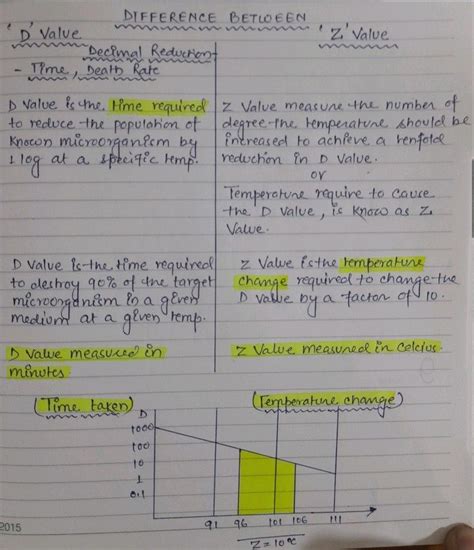 DIFFERENCE BETWEEN
'D' Value
'Z' Value
Decimal Reduction
- Time, Death Rate
D Value is the time required
to reduce the population of
Known microorganism by
1 log at a specific temp.
Z Value measure the number of
degree the temperature should be
increased to achieve a tenfold
reduction in D Value.
or
Temperature require to cause
the D Value, is Know as Z
Value.
D Value is the time required
to destroy 90% of the target
microorganism in a given
medium at a given temp.
Z Value is the temperature
change required to change the
D Value by a factor of 10.
D Value measured in
minutes
Z Value measured in Celcius.
(Time taken)
(Temperature change)
D
1000
100
10
1
0.1
91 96 101 106 111
Z = 10°C
2015